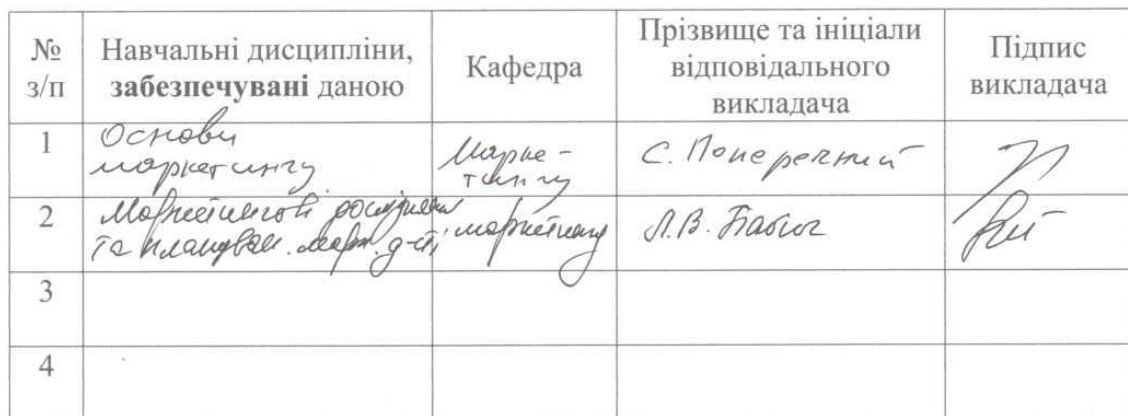 № з/п
Навчальні дисципліни, забезпечувані даною
Кафедра
Прізвище та ініціали відповідального викладача
Підпис викладача
1
Основи
маркетингу
Марке-
тингу
С. Поперечний
2
Маркетингові дослідження
та планував. марк. д-сті
маркетингу
Л.В. Бабич
3
4